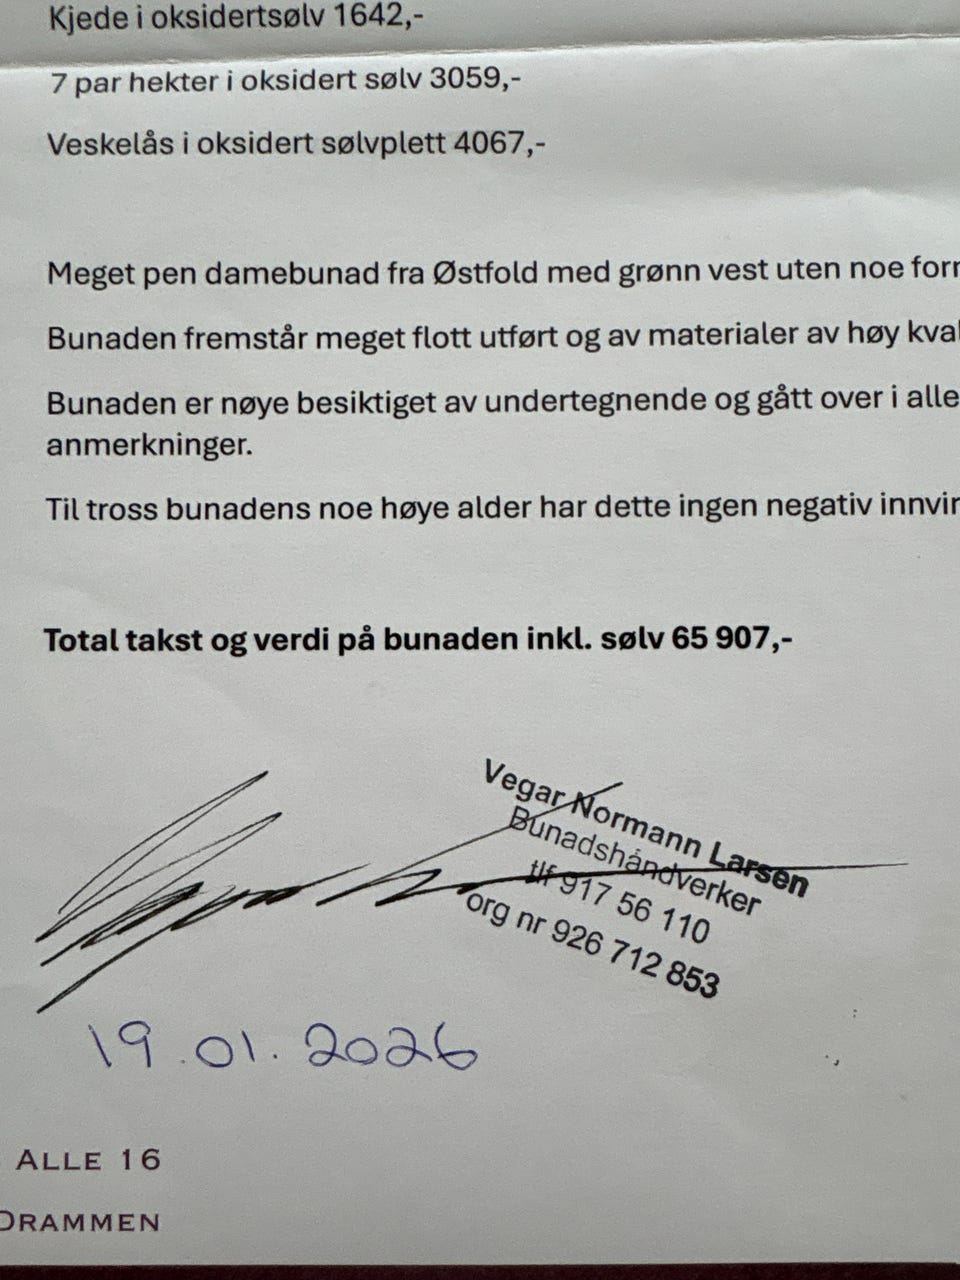 Kjede i oksidertsølv 1642,-
7 par hekter i oksidert sølv 3059,-
Veskelås i oksidert sølvplett 4067,-
Meget pen damebunad fra Østfold med grønn vest uten noe
Bunaden fremstår meget flott utført og av materialer av høy
Bunaden er nøye besiktiget av undertegnende og gått over i alle
anmerkninger.
Til tross bunadens noe høye alder har dette ingen negativ
Total takst og verdi på bunaden inkl. sølv 65 907,-
Vegar Normann Larsen
Bunadshåndverker
tlf 917 56 110
org nr 926 712 853
19.01.2026
ALLE 16
DRAMMEN